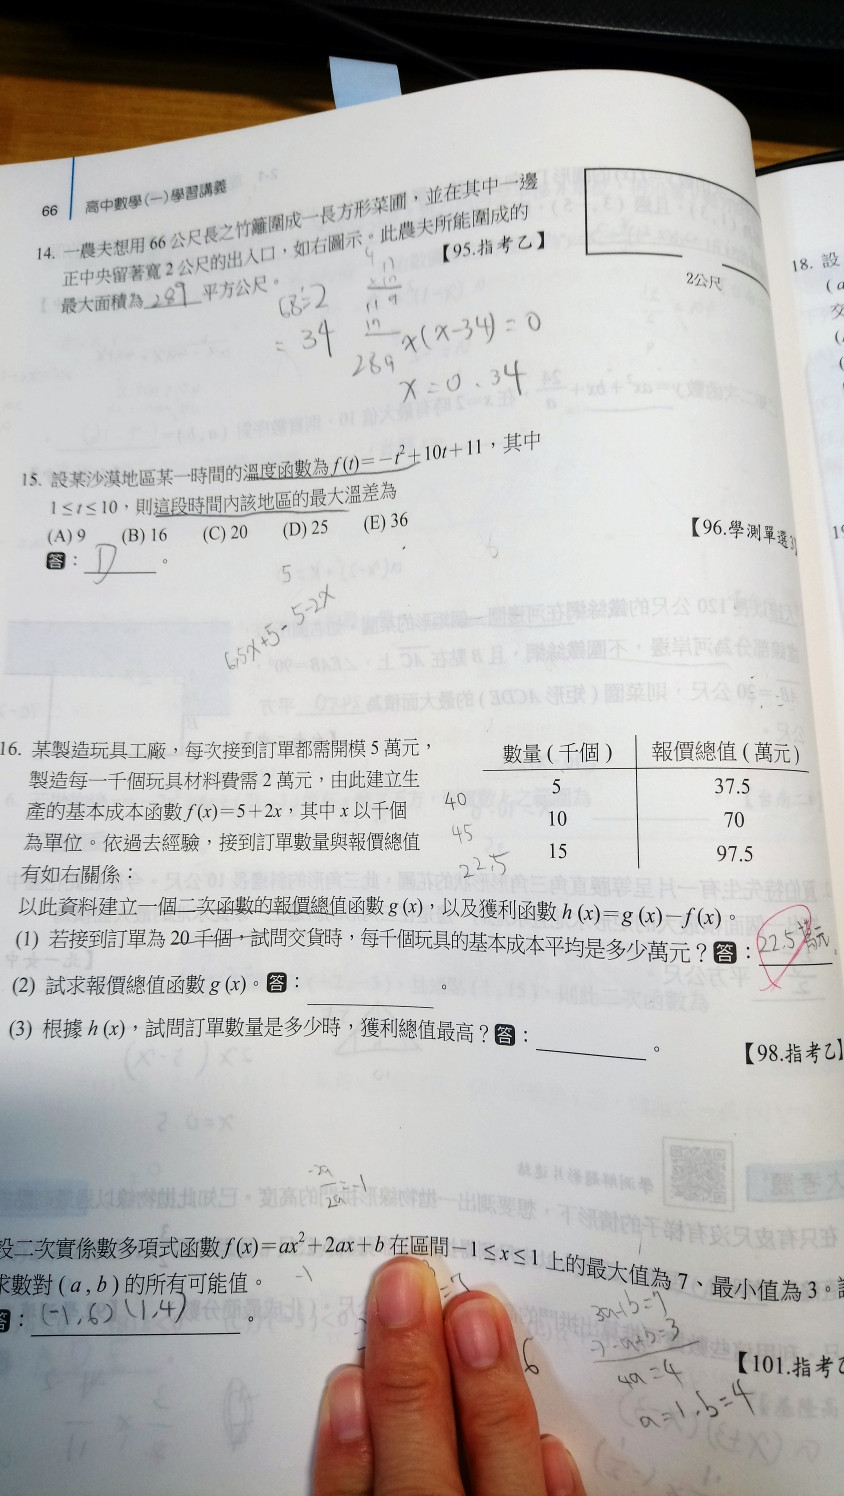 66 高中數學(一)學習講義
14. 一農夫想用66公尺長之竹籬圍成一長方形菜圃，並在其中一邊
正中央留著寬2公尺的出入口，如右圖示。此農夫所能圍成的
最大面積為 289 平方公尺。
【95.指考乙】
2公尺
68÷2
= 34
17
119
17
289
x(x-34)=0
x=0、34
15. 設某沙漠地區某一時間的溫度函數為f(t)=-t²+10t+11，其中
1≤t≤10，則這段時間內該地區的最大溫差為
(A) 9 (B) 16 (C) 20 (D) 25 (E) 36
答：D。
【96.學測單選3】
5
6.5x+5-5-2x
16. 某製造玩具工廠，每次接到訂單都需開模5萬元，
製造每一千個玩具材料費需2萬元，由此建立生
產的基本成本函數f(x)=5+2x，其中x以千個
為單位。依過去經驗，接到訂單數量與報價總值
有如右關係：
數量(千個) 報價總值(萬元)
5 37.5
10 70
15 97.5
40
45
22.5
以此資料建立一個二次函數的報價總值函數g(x)，以及獲利函數h(x)=g(x)-f(x)。
(1) 若接到訂單為20千個，試問交貨時，每千個玩具的基本成本平均是多少萬元？答：22.5萬元。
(2) 試求報價總值函數g(x)。答：。
(3) 根據h(x)，試問訂單數量是多少時，獲利總值最高？答：。
【98.指考乙】
-2a
2a
=-1
設二次實係數多項式函數f(x)=ax²+2ax+b在區間-1≤x≤1上的最大值為7、最小值為3。
求數對(a,b)的所有可能值。
-1
=7
答：(-1,6)(1,4)。
3a+b=7
-)-a+b=3
4a=4
a=1、b=4
6
【101.指考乙
18. 設